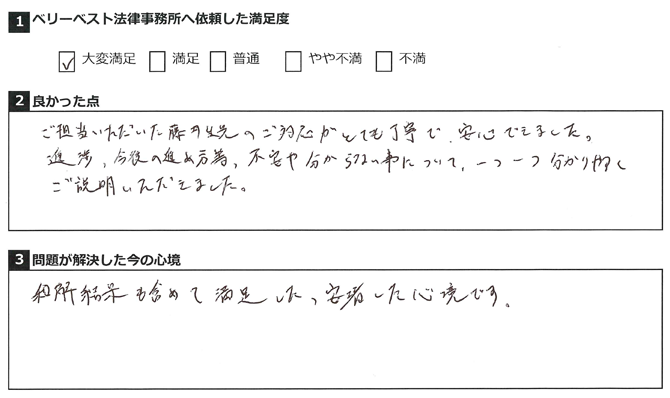 1 ベリーベスト法律事務所へ依頼した満足度
☑ 大変満足 □ 満足 □ 普通 □ やや不満 □ 不満
2 良かった点
ご担当いただいた藤井先生のご対応がとても丁寧で、安心できました。
進渉、今後の進め方等、不安や分からない事について、一つ一つ分かりやすく
ご説明いただきました。
3 問題が解決した今の心境
結果も含めて満足した、安堵した心境です。